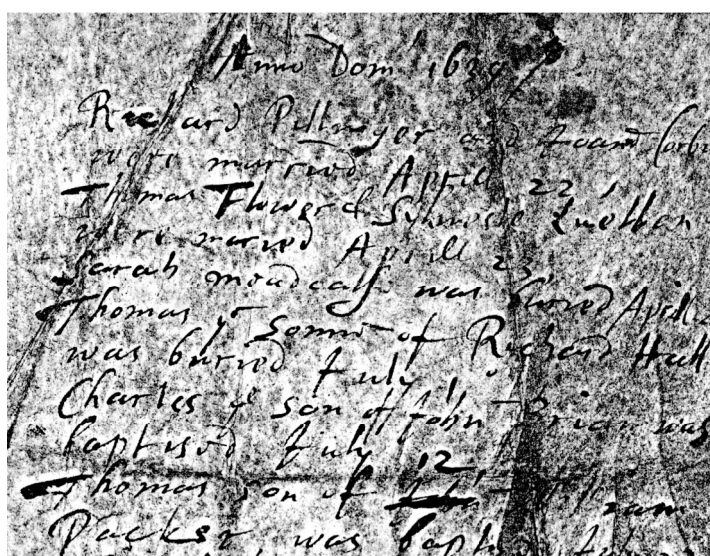 Anno Dom 1639
Richard Pillinger and Joane
were married Aprill 22
Thomas Flower & Sylvester
were maried Aprill 23
Sarah meadcalfe was buried Aprill
Thomas ye sonne of Richard Hall
was buried July 1
Charles ye son of John Brian was
baptised July 12
Thomas son of William
Packer was baptised